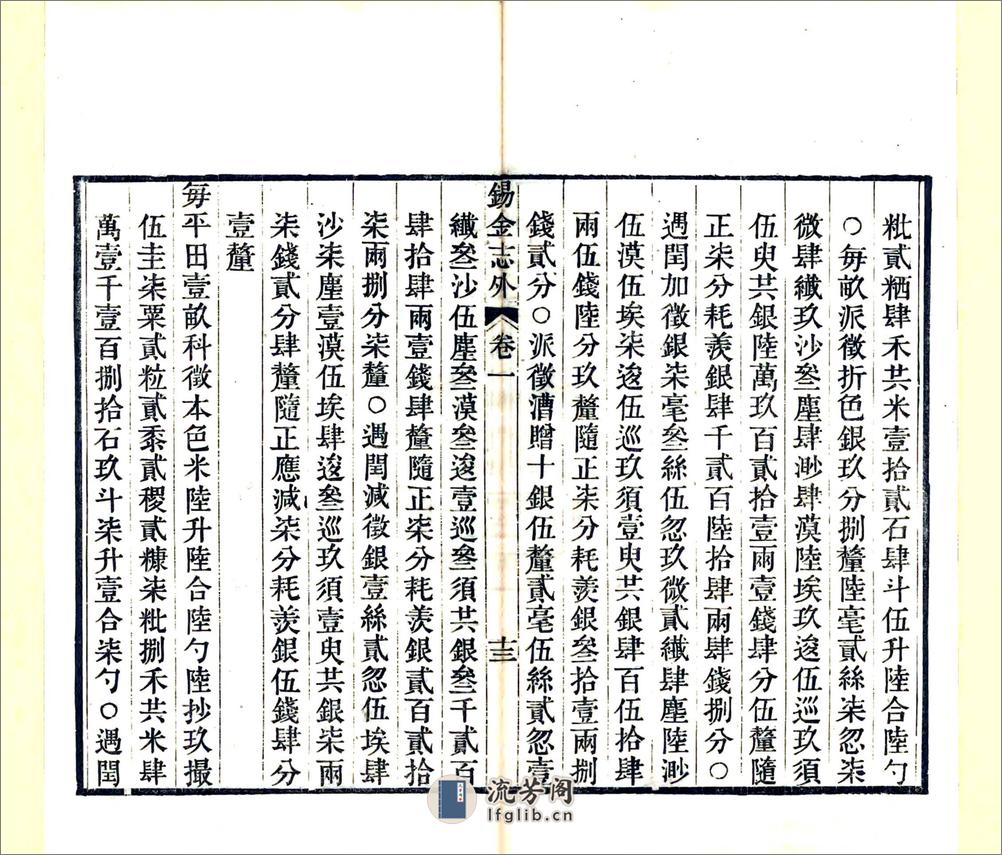 粃貳粞肆禾共米壹拾貳石肆斗伍升陸合陸勺
○每畝派徵折色銀玖分捌釐陸毫貳絲柒忽柒
微肆纖玖沙叄塵肆渺肆漠陸埃玖逡伍巡玖須
伍臾共銀陸萬玖百貳拾壹兩壹錢肆分伍釐隨
正柒分耗羨銀肆千貳百陸拾肆兩肆錢捌分○
遇閏加徵銀柒毫叄絲伍忽玖微貳纖肆塵陸渺
伍漠伍埃柒逡伍巡玖須壹臾共銀肆百伍拾肆
兩伍錢陸分玖釐隨正柒分耗羨銀叄拾壹兩捌
錢貳分○派徵漕贈十銀伍釐貳毫伍絲貳忽壹
錫金志外
卷一
十三
纖叄沙伍塵叄漠叄逡壹巡叄須共銀叄千貳百
肆拾肆兩壹錢肆釐隨正柒分耗羨銀貳百貳拾
柒兩捌分柒釐○遇閏減徵銀壹絲貳忽伍埃肆
沙柒塵壹漠伍埃肆逡叄巡玖須壹臾共銀柒兩
柒錢貳分肆釐隨正應減柒分耗羨銀伍錢肆分
壹釐
每平田壹畝科徵本色米陸升陸合陸勺陸抄玖撮
伍圭柒粟貳粒貳黍貳稷貳糠柒粃捌禾共米肆
萬壹千壹百捌拾石玖斗柒升壹合柒勺○遇閏
流芳阁
lfglib.cn